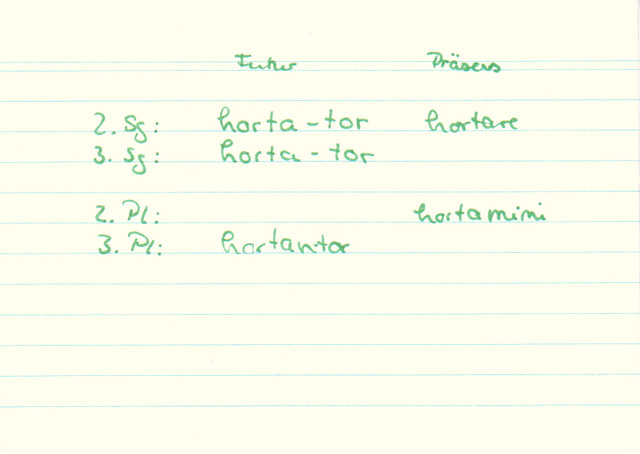 Futur Präsens
2. Sg: horta-tor hortare
3. Sg: horta-tor
2. Pl: hortamini
3. Pl: hortantor